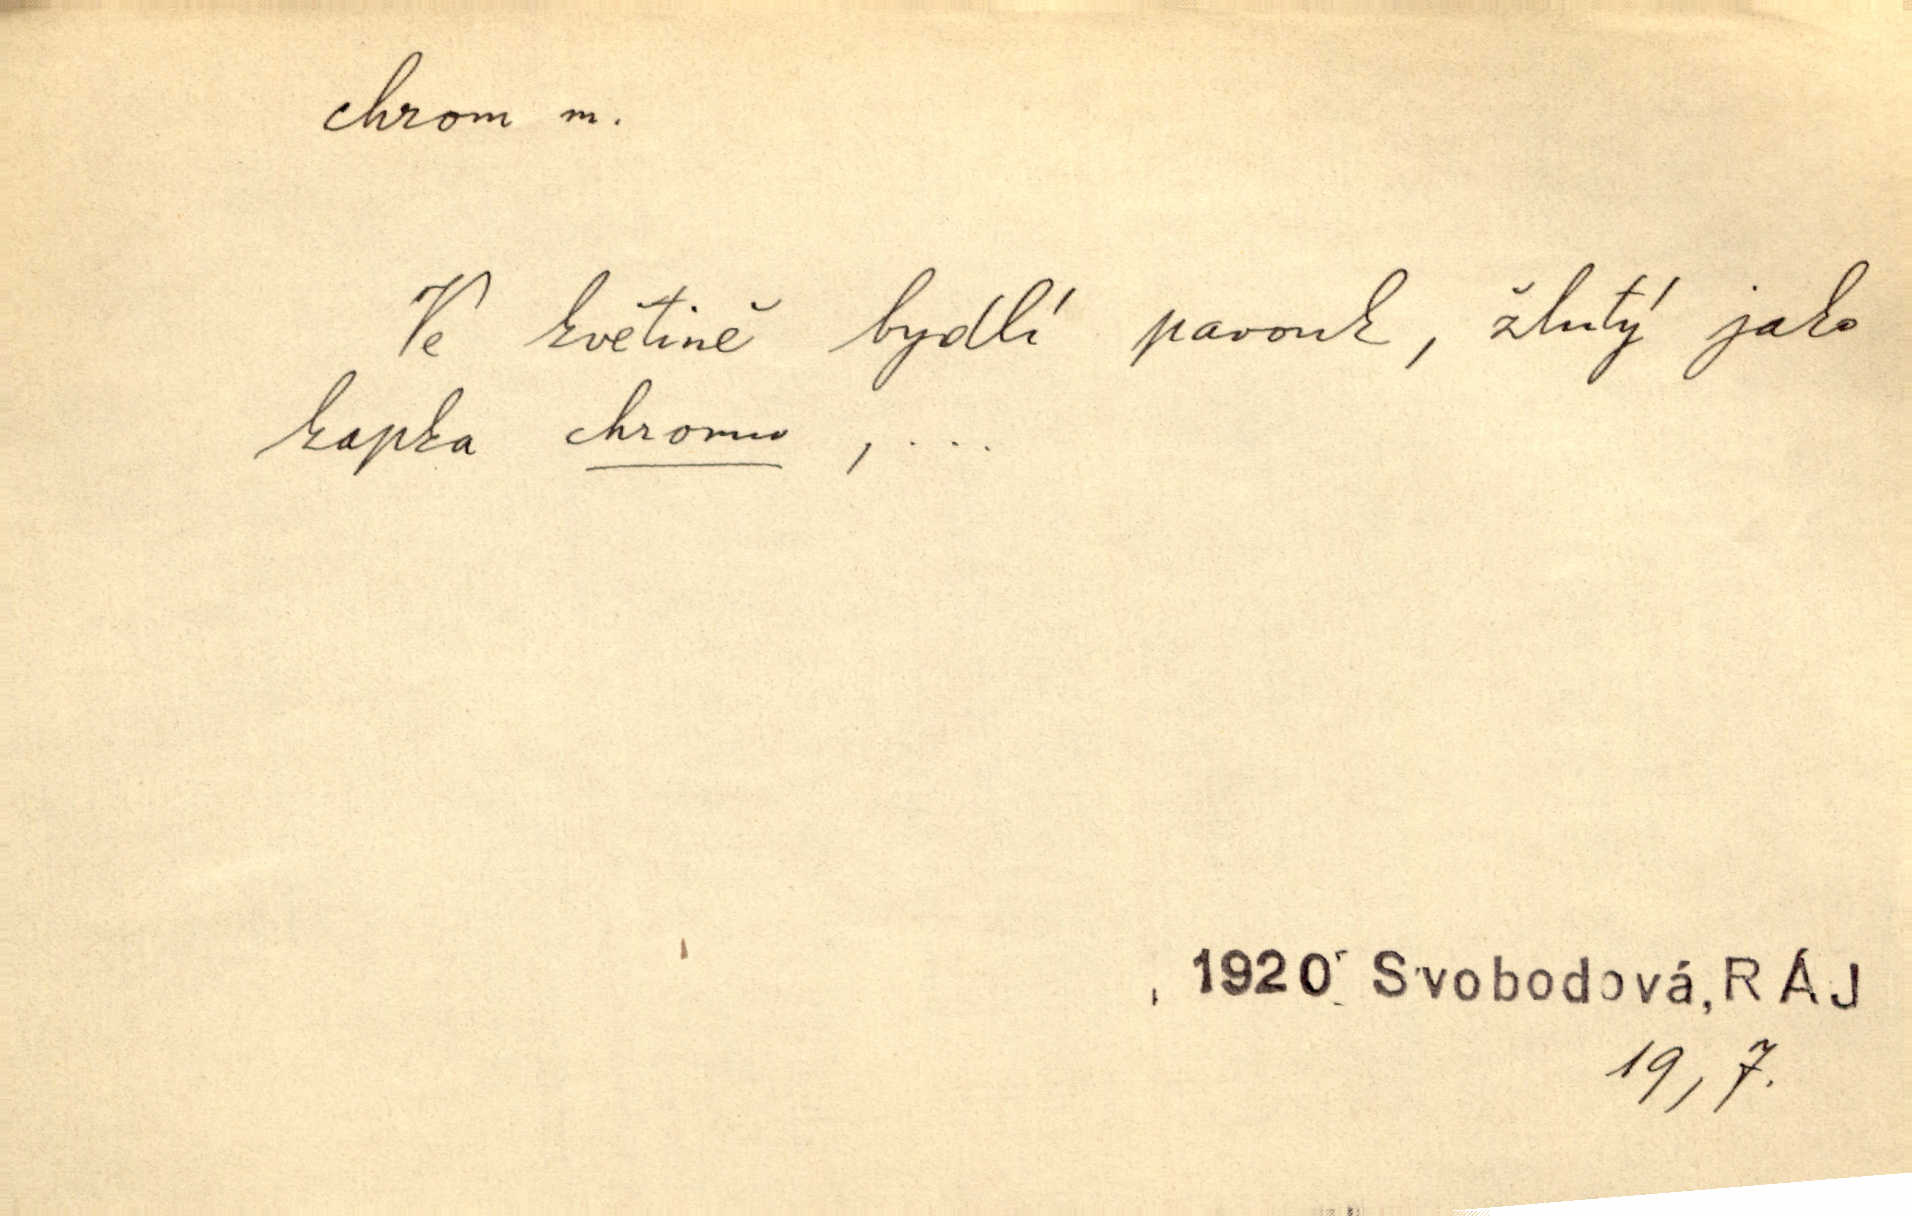 chrom m.
Ve květině bydlí pavouk, žlutý jako
kapka chromu, ...
1920 Svobodová, RÁJ
19, 7.